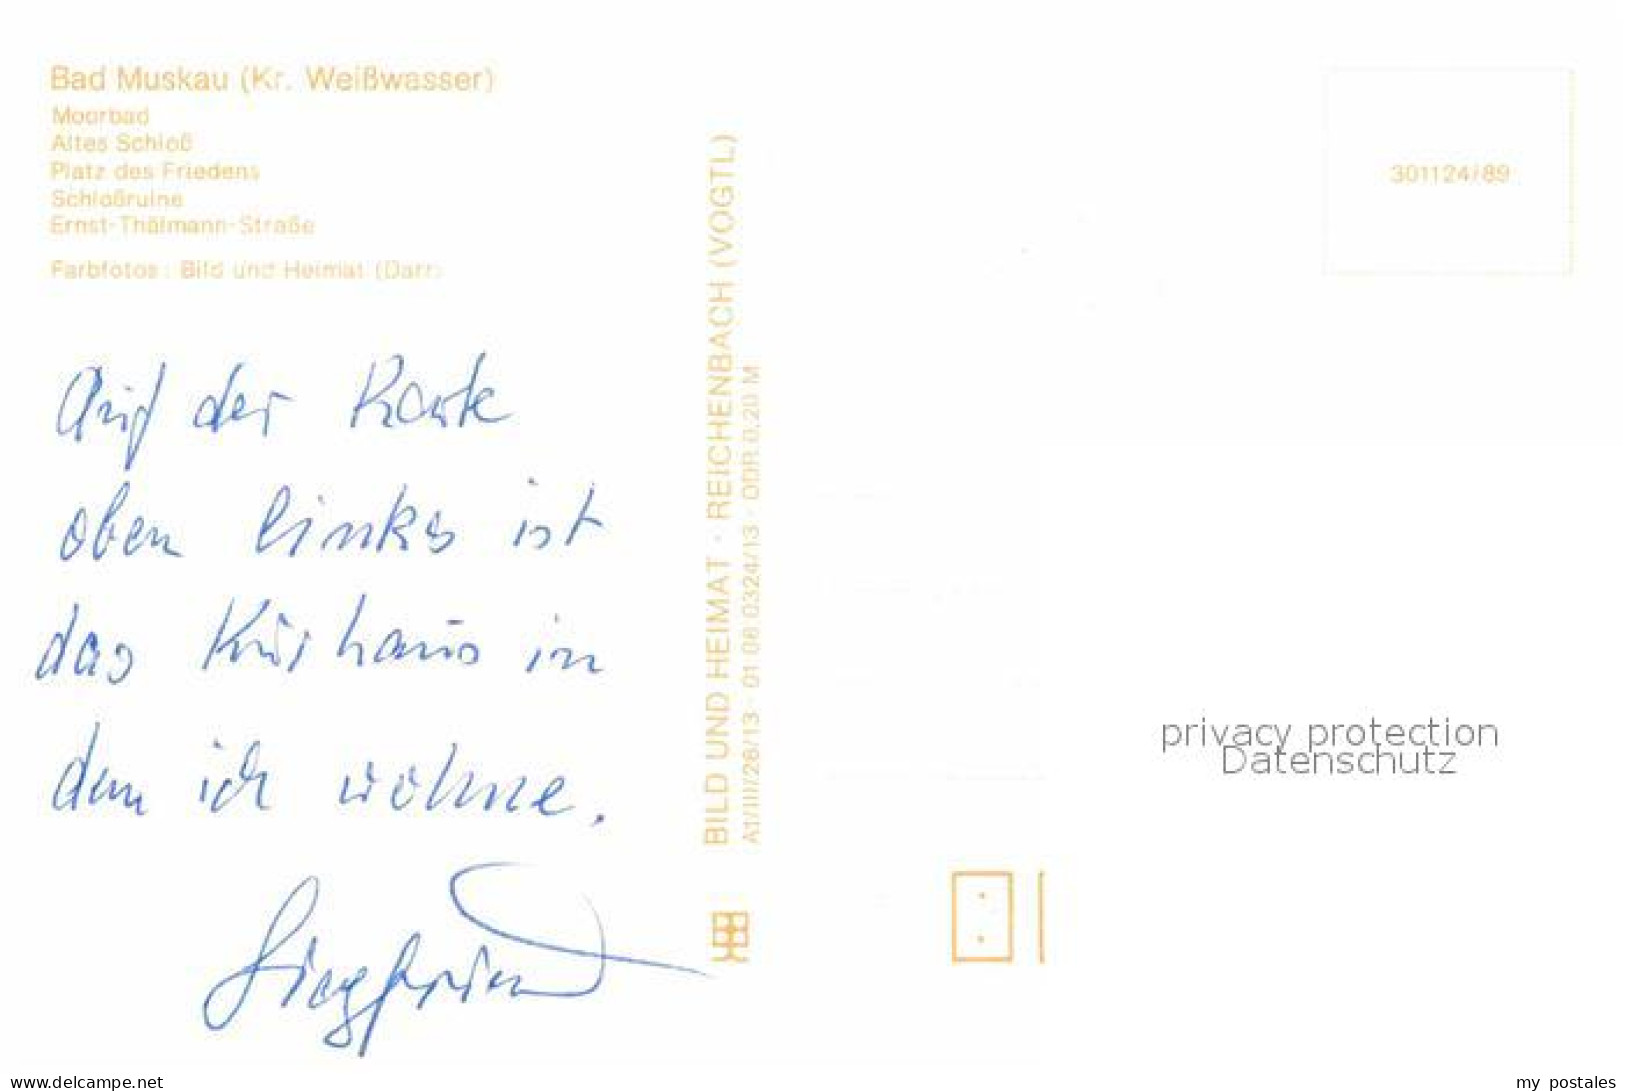 Bad Muskau (Kr. Weißwasser)
Moorbad
Altes Schloß
Platz des Friedens
Schloßruine
Ernst-Thälmann-Straße
Farbfotos: Bild und Heimat (Darr)
Auf der Karte
oben links ist
das Kurhaus in
dem ich wohne.
Siegfried
BILD UND HEIMAT · REICHENBACH (VOGTL)
A1/III/26/13 · 01 06 0324/13 · DDR 0,20 M
301124/89
privacy protection
Datenschutz
www.delcampe.net
my_postales